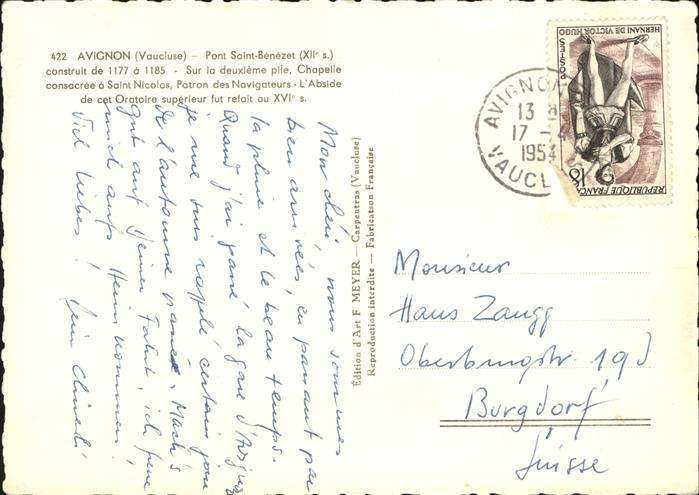 422 AVIGNON (Vaucluse) – Pont Saint-Bénézet (XIIe s.)
construit de 1177 à 1185 - Sur la deuxième pile, Chapelle
consacrée à Saint Nicolas, Patron des Navigateurs - L'Abside
de cet Oratoire supérieur fut refait au XVIe s.
Mon chéri, nous sommes
bien arrivés, en passant par
la pluie et le beau temps.
Quand j'ai passé la gare d'Avignon
je me suis rappelé certain jour
de l'automne passé. Mach's
gut auf Deiner Fahrt, ich freue
mich aufs Heimkommen!
Viel Liebes!
Édition d'Art F. MEYER — Carpentras (Vaucluse)
Reproduction interdite — Fabrication Française
AVIGNON
13 H
17 -
1954
VAUCL
HERNANI DE VICTOR HUGO
POSTES
18F
REPUBLIQUE FRANC
Monsieur
Hans Zaugg
Oberburgstr. 19
Burgdorf
Suisse